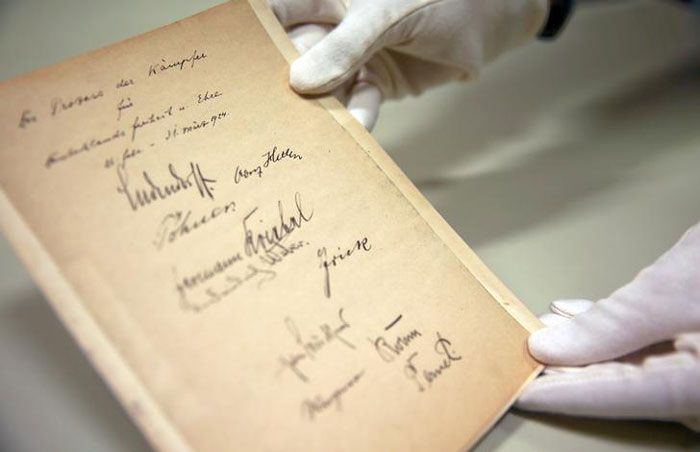 Der Prozess der Kämpfer
für
Deutschlands Freiheit u. Ehre
26. Febr. - 31. März 1924.
Ludendorff. Adolf Hitler
Pöhner.
Hermann Kriebel
Frick
Weber.
Wagner Röhm
Pernet.